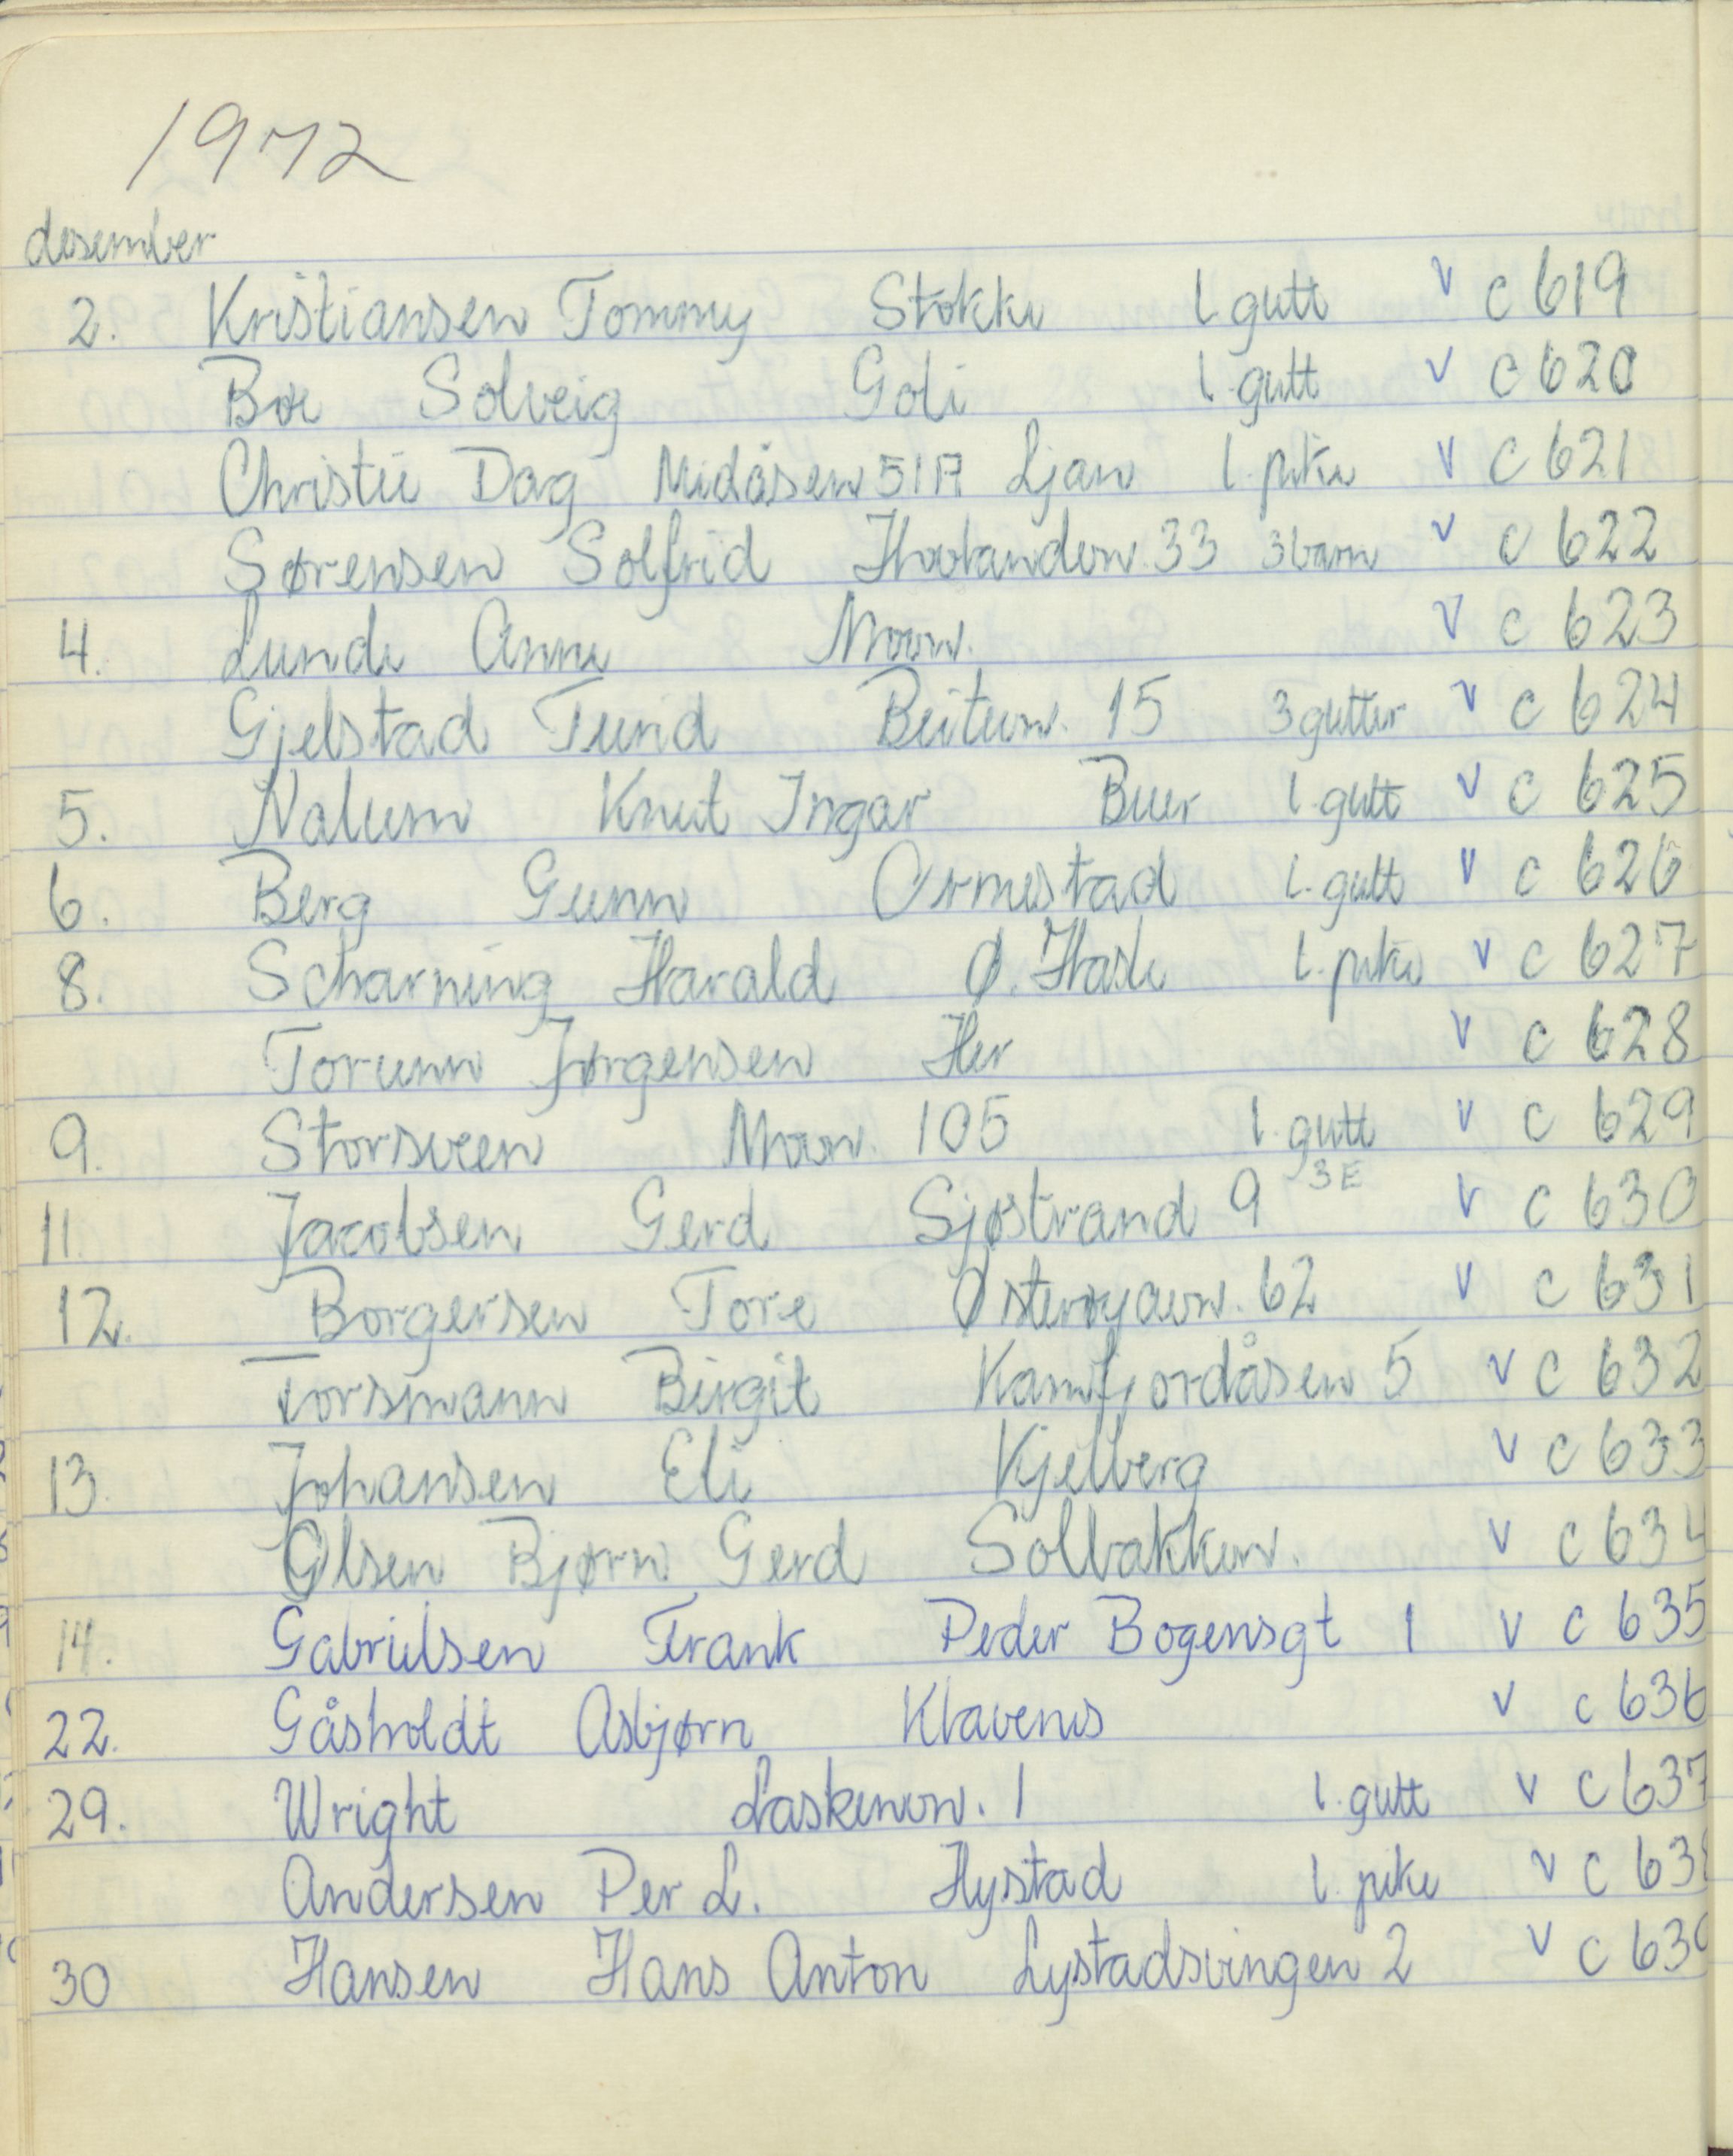 1972
desember
2. Kristiansen Tommy Stokke 1. gutt v c 619
Bøe Solveig Goli 1. gutt v c 620
Christie Dag Midåsen 51A Ljan 1. pike v c 621
Sørensen Solfrid 33 3 barn v c 622
4. Lunde Anne Moav. v c 623
Gjelstad Turid 15 3 gutter v c 624
5. Nalum Knut Ingar Buer 1. gutt v c 625
6. Berg Gunn Ormestad 1. gutt v c 626
8. Scharning Harald Ø. Hasle 1. pike v c 627
Torunn Jørgensen Her v c 628
9. Storsveen Moav. 105 1. gutt v c 629
11. Jacobsen Gerd Sjøstrand 9 3E v c 630
12. Borgersen Tore Østerøyavn. 62 v c 631
Torsmann Birgit Kamfjordåsen 5 v c 632
13. Johansen Eli Kjelberg v c 633
Olsen Bjørn Gerd Solbakken. v c 634
14. Gabrielsen Frank Peder Bogensgt 1 v c 635
22. Gåsholdt Asbjørn Klavenes v c 636
29. Wright 1 1. gutt v c 637
Andersen Per L. Hystad 1. pike v c 638
30 Hansen Hans Anton Lystadsvingen 2 v c 639